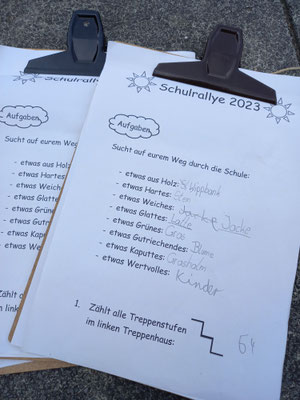 Schulrallye 2023
Aufgaben
Sucht auf eurem Weg durch die Schule:
- etwas aus Holz:
- etwas Hartes:
- etwas Weiches: Jacke
- etwas Glattes:
- etwas Grünes: Gras
- etwas Gutriechendes: Blume
- etwas Kaputtes: Grashalm
- etwas Wertvolles: Kinder
1. Zählt alle Treppenstufen
im linken Treppenhaus: 64
Schulrallye
Aufgaben
Sucht auf eurem W
- etwas aus
- etwas Har
- etwas Wei
- etwas Gla
- etwas Grü
- etwas Gut
- etwas Kap
- etwas We
1. Zählt
im linken